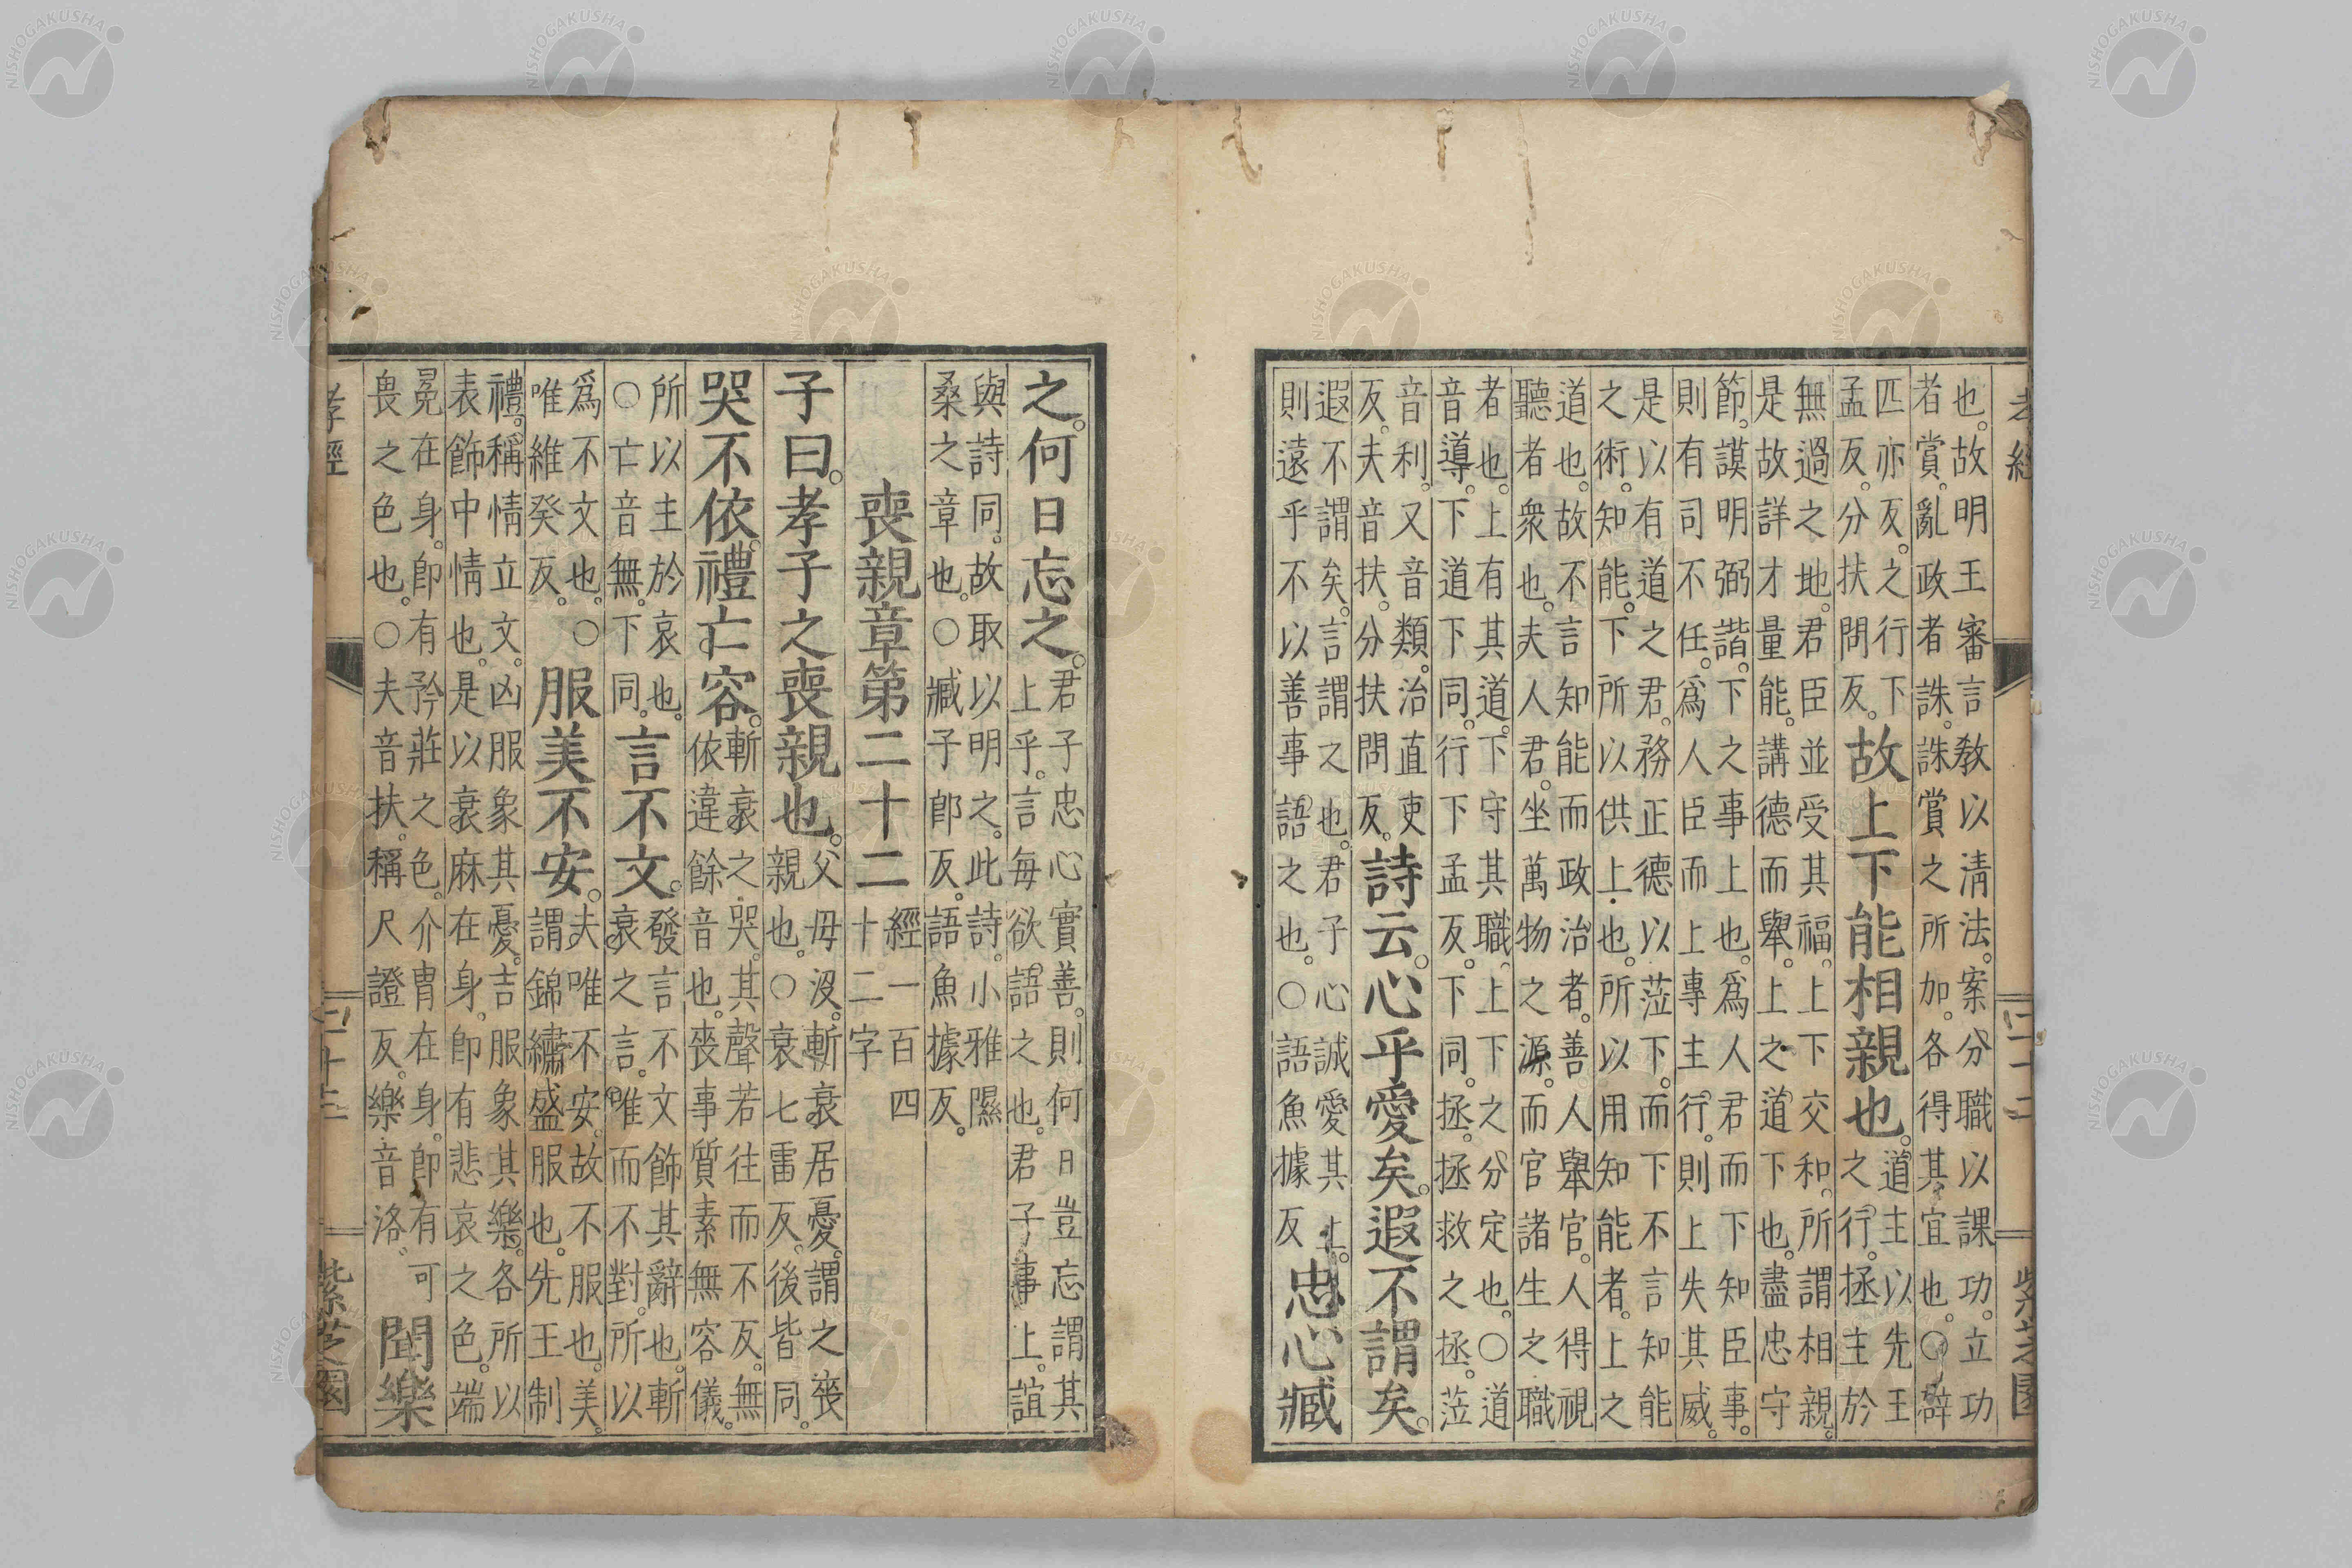 也。故明王審言教以清法。案分職以課功。立功
者賞。亂政者誅。誅賞之所加。各得其宜也。○辟
匹亦反。之行下
孟反。分扶問反。
故上下能相親也。
道主以先王
之行。拯主於
無過之地。君臣並受其福。上下交和。所謂相親。
是故詳才量能。講德而舉。上之道下也。盡忠守
節。謨明弼諧。下之事上也。爲人君而下知臣事。
則有司不任。爲人臣而上專主行。則上失其威。
是以有道之君。務正德以蒞下。而下不言知能
之術。知能。下所以供上也。所以用知能者。上之
道也。故不言知能而政治者。善人舉官。人得視
聽者衆也。夫人君。坐萬物之源。而官諸生之職
者也。上有其道。下守其職。上下之分定也。○道
音導。下道下同。行下孟反。下同。拯。拯救之拯。蒞
音利。又音類。治直吏
反。夫音扶。分扶問反。
詩云。心乎愛矣。遐不謂矣。
遐不謂矣。言謂之也。君子心誠愛其上。
則遠乎不以善事語之也。○語魚據反
忠心臧
之。何日忘之。
君子忠心實善。則何日豈忘謂其
上乎。言每欲語之也。君子事上。誼
與詩同。故取以明之。此詩。小雅隰
桑之章也。○臧子郎反。語魚據反。
喪親章第二十二
經一百四
十二字
子曰。孝子之喪親也。
父母沒。斬衰居憂。謂之喪
親也。○衰七雷反。後皆同。
哭不依。禮亡容。
斬衰之哭。其聲若往而不反。無
依違餘音也。喪事質素無容儀。
所以主於哀也。
○亡音無。下同。
言不文。
發言不文飾其辭也。斬
衰之言。唯而不對。所以
爲不文也。○
唯維癸反。
服美不安。
夫唯不安。故不服也。美。
謂錦繡盛服也。先王制
禮。稱情立文。凶服象其憂。吉服象其樂。各所以
表飾中情也。是以衰麻在身。卽有悲哀之色。端
冕在身。卽有矜莊之色。介胄在身。卽有可
畏之色也。○夫音扶。稱尺證反。樂音洛。
聞樂
孝經